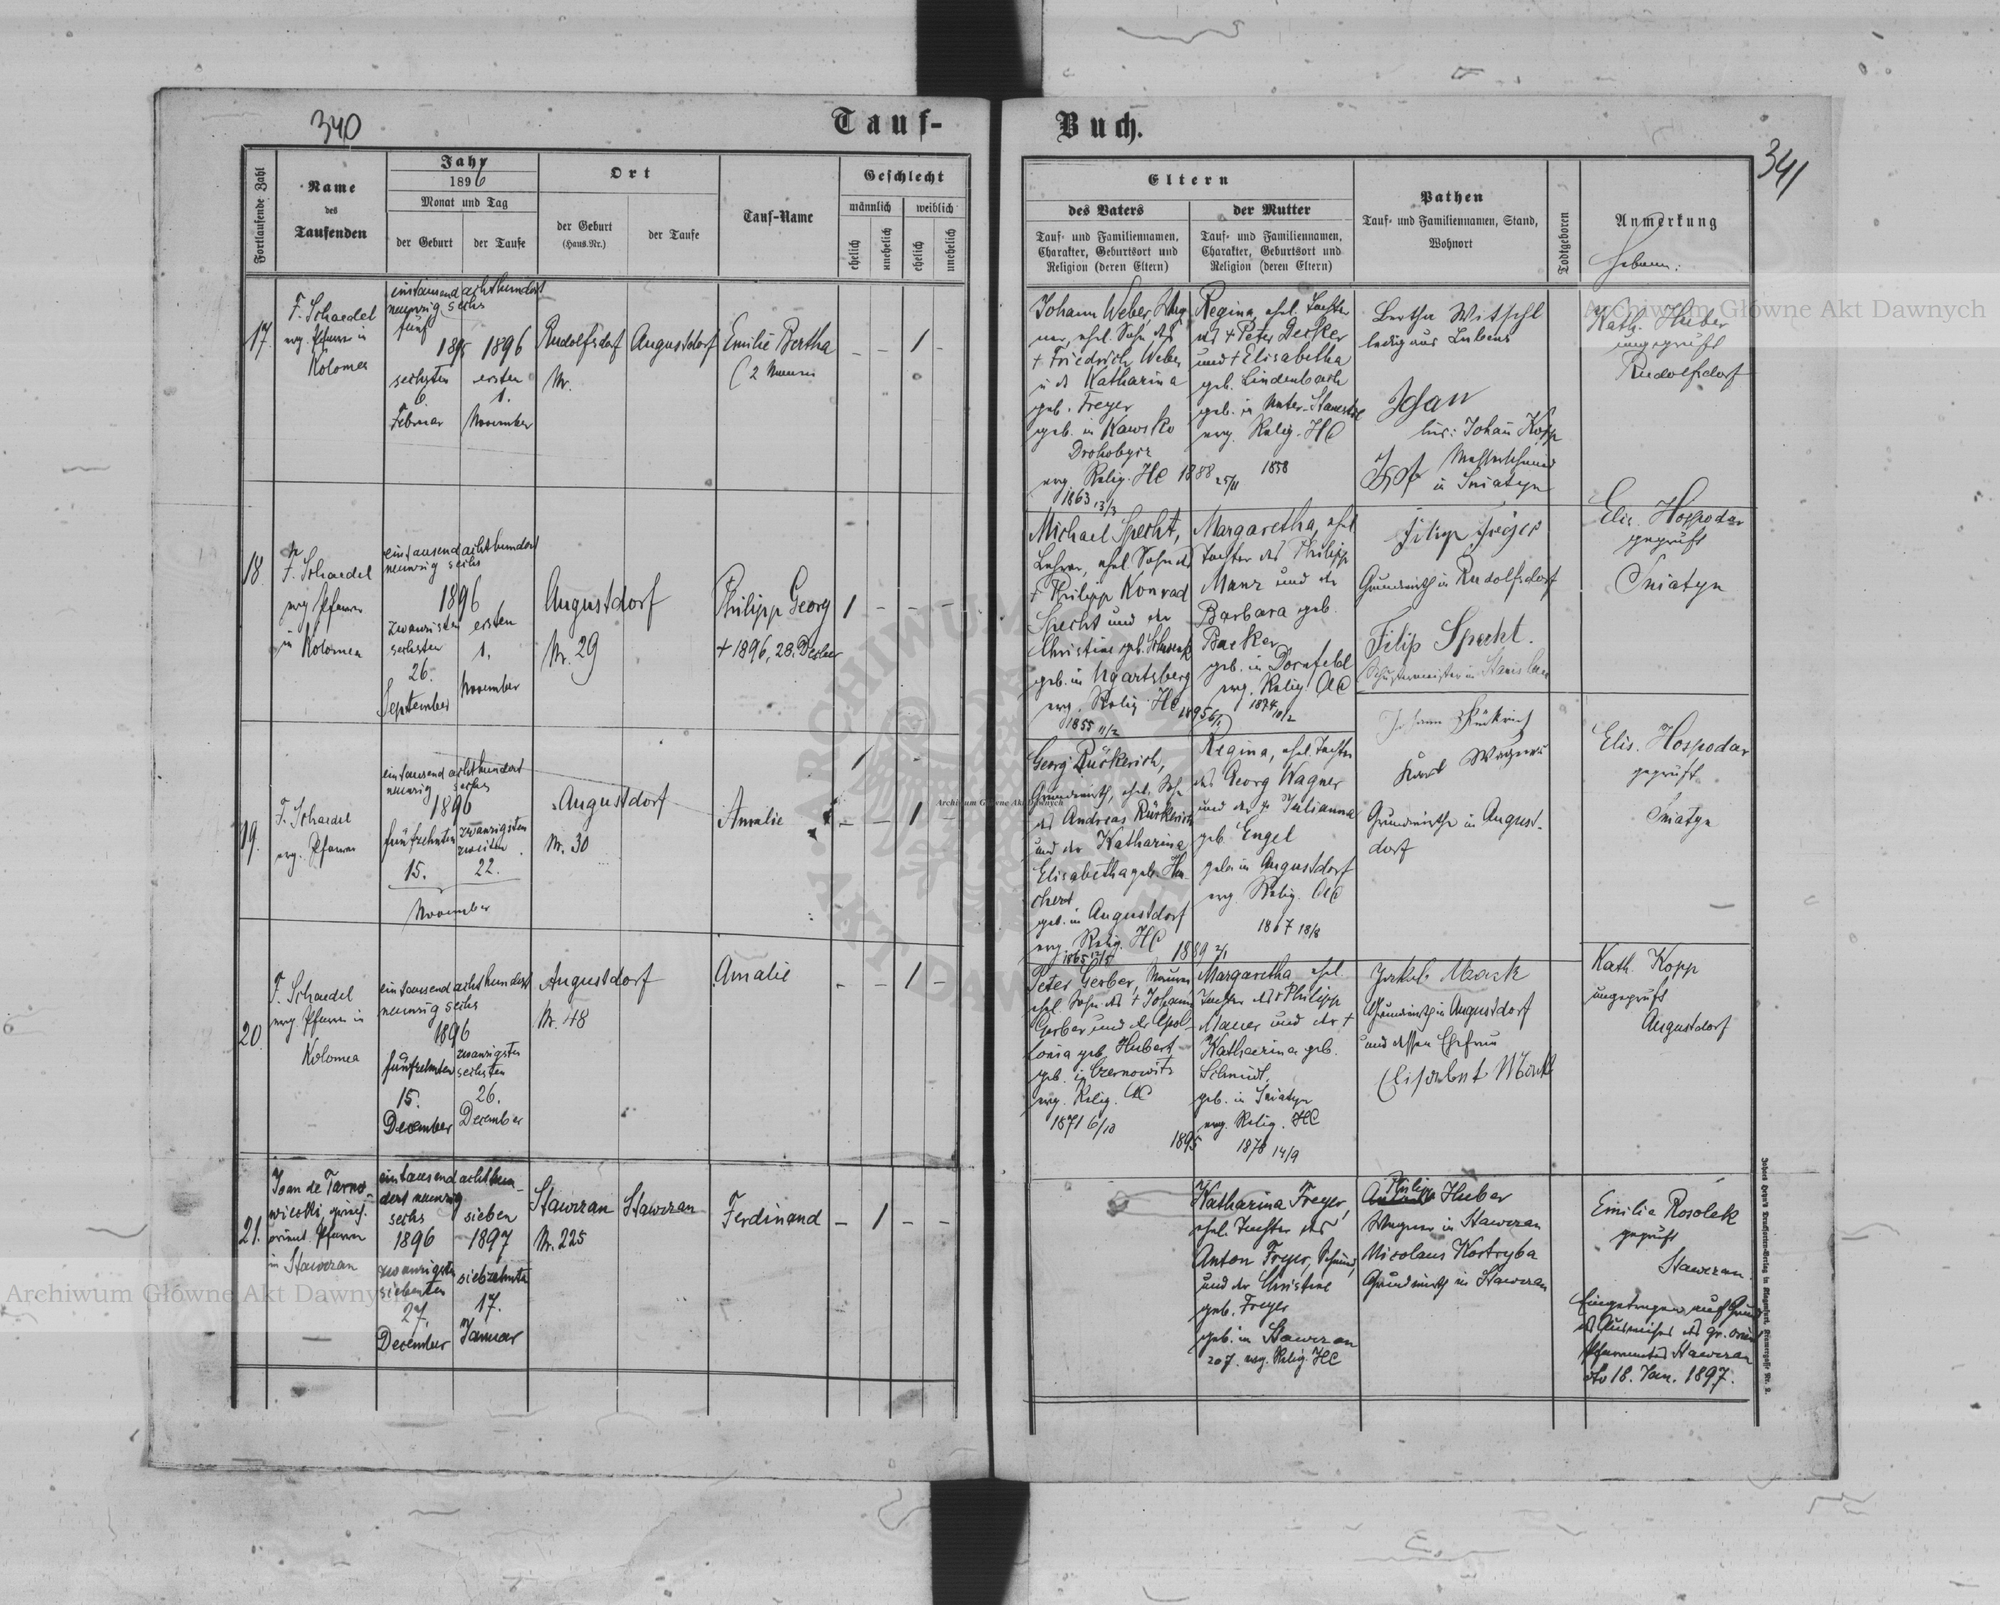 340
Tauf-
Fortlaufende Zahl
Name
des
Taufenden
Jahr
1896
Monat und Tag
der Geburt
der Taufe
Ort
der Geburt
(Haus-Nr.)
der Taufe
Tauf-Name
Geschlecht
männlich
weiblich
ehelich
unehelich
ehelich
unehelich
17.
F. Schaedel
evg. Pfarrer in
Kolomea
eintausend achthundert
neunzig sechs
fünf
1895
1896
sechsten
ersten
6.
1.
Februar
November
Rudolfsdorf
Nr.
Augustdorf
Emilie Bertha
(2 Namen
– – 1 –
18.
F. Schaedel
evg. Pfarrer
in Kolomea
eintausend achthundert
neunzig sechs
1896
zwanzigsten
ersten
sechsten
1.
26.
September
November
Augustdorf
Nr. 29
Philipp Georg
+ 1896, 28. Dezber
1 – – –
19.
F. Schaedel
evg. Pfarrer
eintausend achthundert
neunzig sechs
1896
fünfzehnten
zwanzigsten
zweiten
15.
22.
November
Augustdorf
Nr. 30
Amalie
– – 1 –
20.
F. Schaedel
evg. Pfarrer in
Kolomea
eintausend achthundert
neunzig sechs
1896
fünfzehnten
zwanzigsten
sechsten
15.
26.
December
December
Augustdorf
Nr. 48
Amalie
– – 1 –
21.
Joan de Tarno-
wiecki griech.
orient. Pfarrer
in Stawczan
eintausend achthun-
dert neunzig
sechs
sieben
1896
1897
zwanzigsten
siebenten
siebzehnten
27.
17.
December
Januar
Stawczan
Nr. 225
Stawczan
Ferdinand
– 1 – –
Buch.
341
Eltern
des Vaters
Tauf- und Familiennamen,
Charakter, Geburtsort und
Religion (deren Eltern)
der Mutter
Tauf- und Familiennamen,
Charakter, Geburtsort und
Religion (deren Eltern)
Pathen
Tauf- und Familiennamen, Stand,
Wohnort
Todtgeboren
Anmerkung
Hebamm:
Johann Weber, Wag-
ner, ehel. Sohn des
+ Friedrich Weber
u. der Katharina
geb. Freyer
geb. in Kawsko
Drohobycz
evg. Relig. HC
1863 13/3
1888 25/11
Regina, ehel. Tochter
des + Peter Decker
und + Elisabetha
geb. Lindenbach
geb. in Unter-Stanestie
evg. Relig. HC
1858
Bertha Witschl
ledig aus Luzens
Johann Kopp
Messerschmied
in Sniatyn
Kath. Huber
ungeprüft
Rudolfsdorf
Michael Specht,
Lehrer, ehel. Sohn des
+ Philipp Konrad
Specht und der
Christine geb. Schwenk
geb. in Ugartsberg
evg. Relig. HC
1855 11/2
1895
Margaretha, ehel.
Tochter des Philipp
Manz und der
Barbara geb.
Backer
geb. in Dornfeld
evg. Relig. AC
1874 10/2
Filipp
Grundwirth in Rudolfsdorf
Filip Specht.
Schustermeister in Stanislau
Elis. Hospodar
geprüft
Sniatyn
Georg Rückerich,
Grundwirth, ehel. Sohn
des Andreas Rückerich
und der Katharina
Elisabetha geb. Hu-
chert
geb. in Augustdorf
evg. Relig. HC
1865 12/5
1889 2/1
Regina, ehel. Tochter
des Georg Wagner
und der + Julianna
geb. Engel
geb. in Augustdorf
evg. Relig. AC
1867 18/8
Johann Rückrich
Karl Wagner
Grundwirthe in August-
dorf
Elis. Hospodar
geprüft
Sniatyn
Peter Gerber, Maurer
ehel. Sohn des + Johann
Gerber und der Apol-
lonia geb. Hubert
geb. in Czernowitz
evg. Relig. AC
1871 6/10
1895
Margaretha ehel.
Tochter des + Philipp
Mauer und der +
Katharina geb.
Schmidt,
geb. in Sniatyn
evg. Relig. HC
1878 14/9
Jakob Mack
Grundwirth in Augustdorf
und dessen Ehefrau
Elisabet Mack
Kath. Kopp
ungeprüft
Augustdorf
Katharina Freyer,
ehel. Tochter des
Anton Freyer, Schmied,
und der Christine
geb. Freyer
geb. in Stawczan
20 J. evg. Relig. HC
Philipp Huber
Wagner in Stawczan
Nicolaus Kostryba
Grundwirth in Stawczan
Emilie Rosolek
geprüft
Stawczan.
Eingetragen auf Grund
des Ausweises des gr. orient
Pfarramtes Stawczan
dto 18. Jan. 1897.
Archiwum Główne Akt Dawnych
Archiwum Główne Akt Dawnych
Archiwum Główne Akt Dawnych